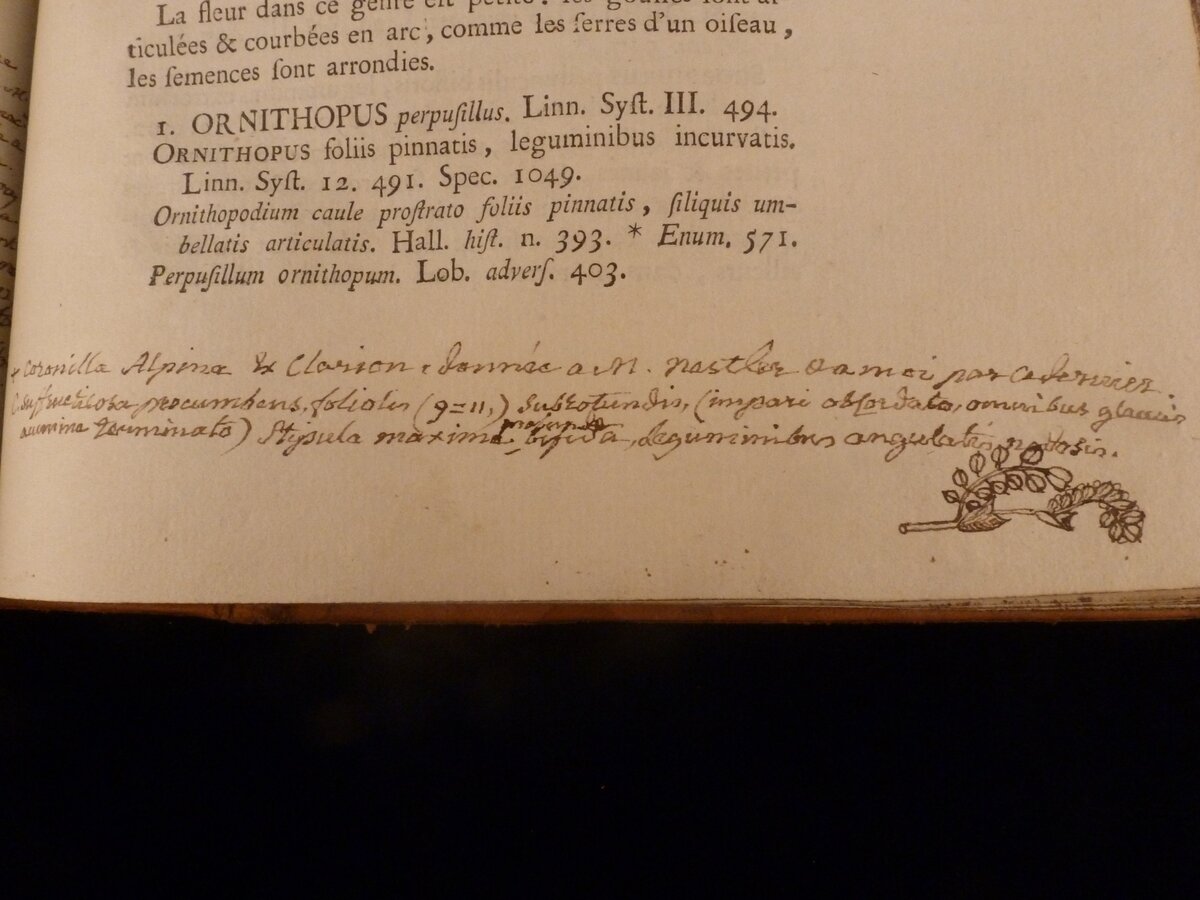 La fleur dans ce genre est petite : les gousses sont ar-
ticulées & courbées en arc, comme les serres d'un oiseau,
les semences sont arrondies.
1. ORNITHOPUS perpusillus. Linn. Syst. III. 494.
ORNITHOPUS foliis pinnatis, leguminibus incurvatis.
Linn. Syst. 12. 491. Spec. 1049.
Ornithopodium caule prostrato foliis pinnatis, siliquis um-
bellatis articulatis. Hall. hist. n. 393. * Enum. 571.
Perpusillum ornithopum. Lob. advers. 403.
+ Coronilla Alpina & Clarion. donnée a M. Nestler & a moi par
C. suffruticosa procumbens, foliolis (9=11,) subrotundis, (impari obcordato, omnibus glaucis
acumine terminato) Stipula maxima bifida, leguminibus angulatis nodosis.